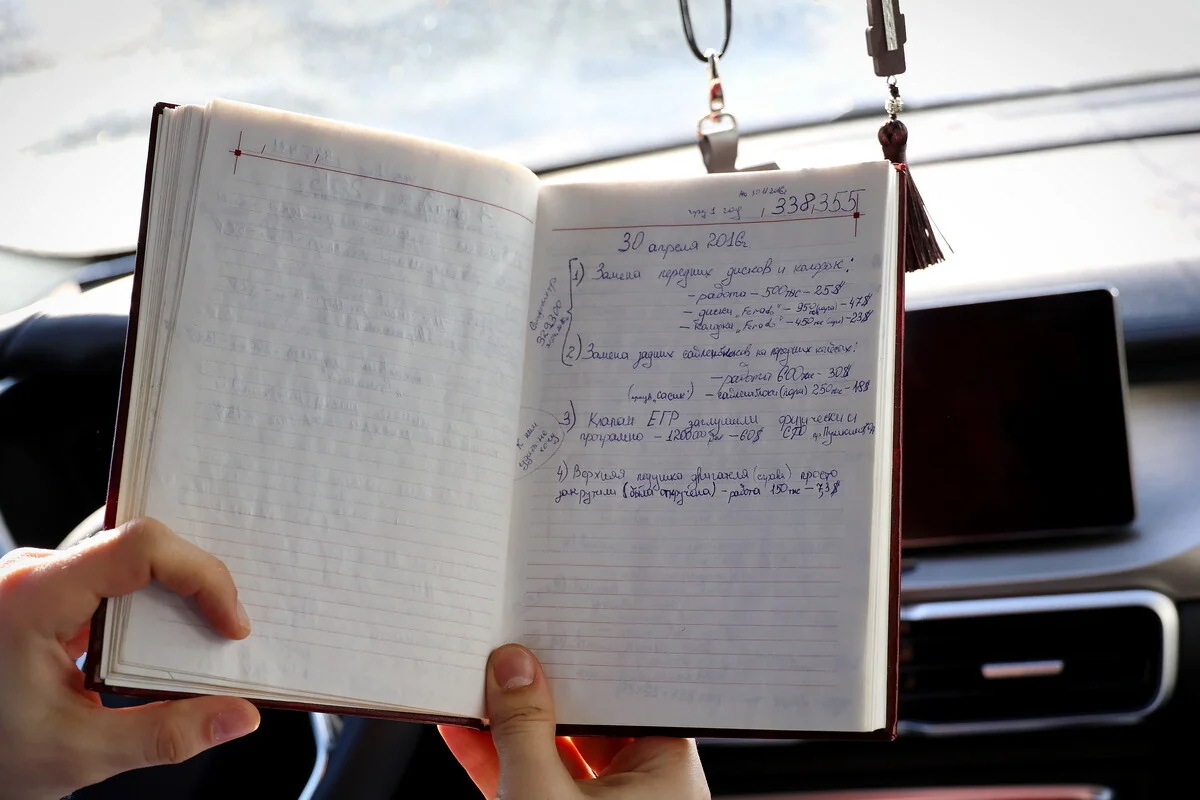 338,355
1 год
30 апреля 2016г
1) Замена передних дисков и колодок:
- работа - 500тыс - 25$
- диски "Ferodo" - 950 (пара) - 47$
- Колодки "Ferodo" - 450тыс - 23$
2) Замена задних сайлентблоков на передних
- работа 600тыс - 30$
- (пара) 250тыс - 18$
3) Клапан ЕГР заглушили физически и
програмно - 1200000 - 60$ СТО
4) Верхняя подушка двигателя (справа) просто
закрутили (была откручена) - работа 150тыс - 7,3$